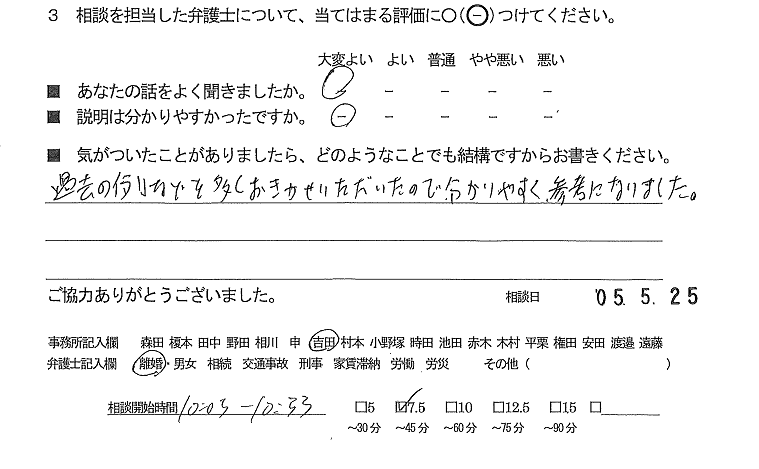 3 相談を担当した弁護士について、当てはまる評価に○(⊖)つけてください。
大変よい よい 普通 やや悪い 悪い
■ あなたの話をよく聞きましたか。 － － － －
■ 説明は分かりやすかったですか。 － － － － －
■ 気がついたことがありましたら、どのようなことでも結構ですからお書きください。
過去の例などを多くおきかせいただいたので分かりやすく参考になりました。
ご協力ありがとうございました。 相談日 '05. 5. 25
事務所記入欄 森田 榎本 田中 野田 相川 申 吉田 村本 小野塚 時田 池田 赤木 木村 平栗 権田 安田 渡邉 遠藤
弁護士記入欄 離婚・男女 相続 交通事故 刑事 家賃滞納 労働 労災 その他 ( )
相談開始時間 10:03 ー10:33 □5 ☑7.5 □10 □12.5 □15 □
～30分 ～45分 ～60分 ～75分 ～90分